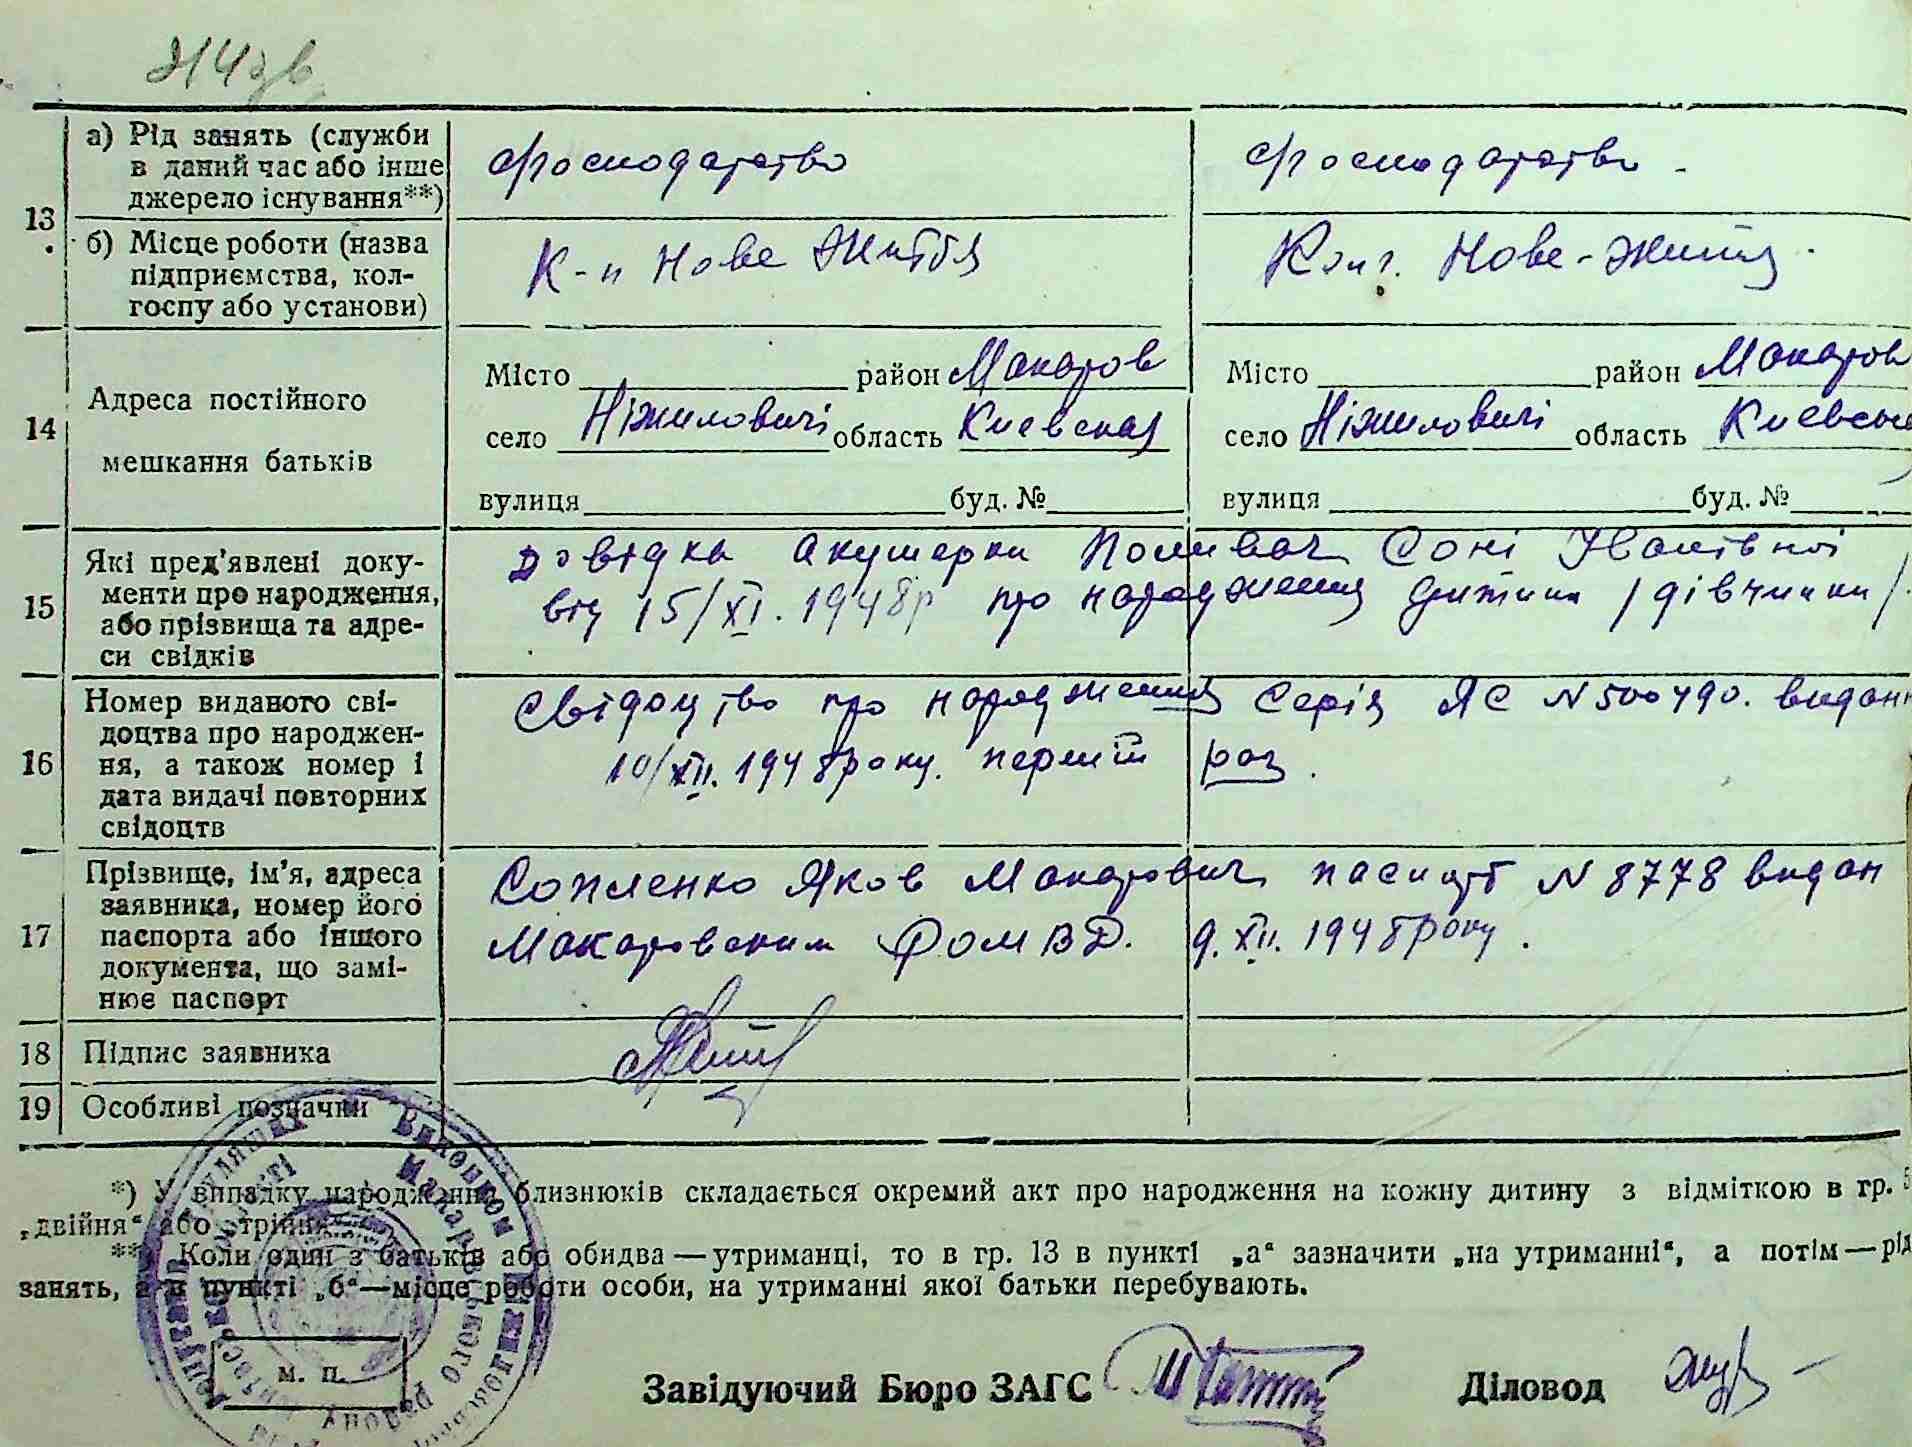 214зв
13
а) Рід занять (служби
в даний час або інше
джерело існування**)
господарство
господарство
б) Місце роботи (назва
підприємства, кол-
госпу або установи)
К-п Нове Життя
Колг. Нове-Життя
14
Адреса постійного
мешкання батьків
Місто район Макаров
село Ніжиловичі область Киевская
вулиця буд. №
Місто район Макаров
село Ніжиловичі область
вулиця буд. №
15
Які пред'явлені доку-
менти про народження,
або прізвища та адре-
си свідків
Довідка акушерки Поливач Соні Іванівної
від 15/XI. 1948р про народження дитини /дівчинки/.
16
Номер виданого сві-
доцтва про народжен-
ня, а також номер і
дата видачі повторних
свідоцтв
Свідоцтво про народження Серія ЯС N 500490. видан
10/XII. 1948 року. перший раз.
17
Прізвище, ім'я, адреса
заявника, номер його
паспорта або іншого
документа, що замі-
нює паспорт
Яков Макарович паспорт N 8778 видан
Макаровским РОМВД. 9. XII. 1948 року.
18
Підпис заявника
19
Особливі позначки
*) У випадку народження близнюків складається окремий акт про народження на кожну дитину з відміткою в гр. 5
„двійня“ або „трійня“
**) Коли один з батьків або обидва — утриманці, то в гр. 13 в пункті „а“ зазначити „на утриманні“, а потім — рід
занять, а в пункті „б“ — місце роботи особи, на утриманні якої батьки перебувають.
Виконком
Макарівського району
м. п.
Завідуючий Бюро ЗАГС
Діловод